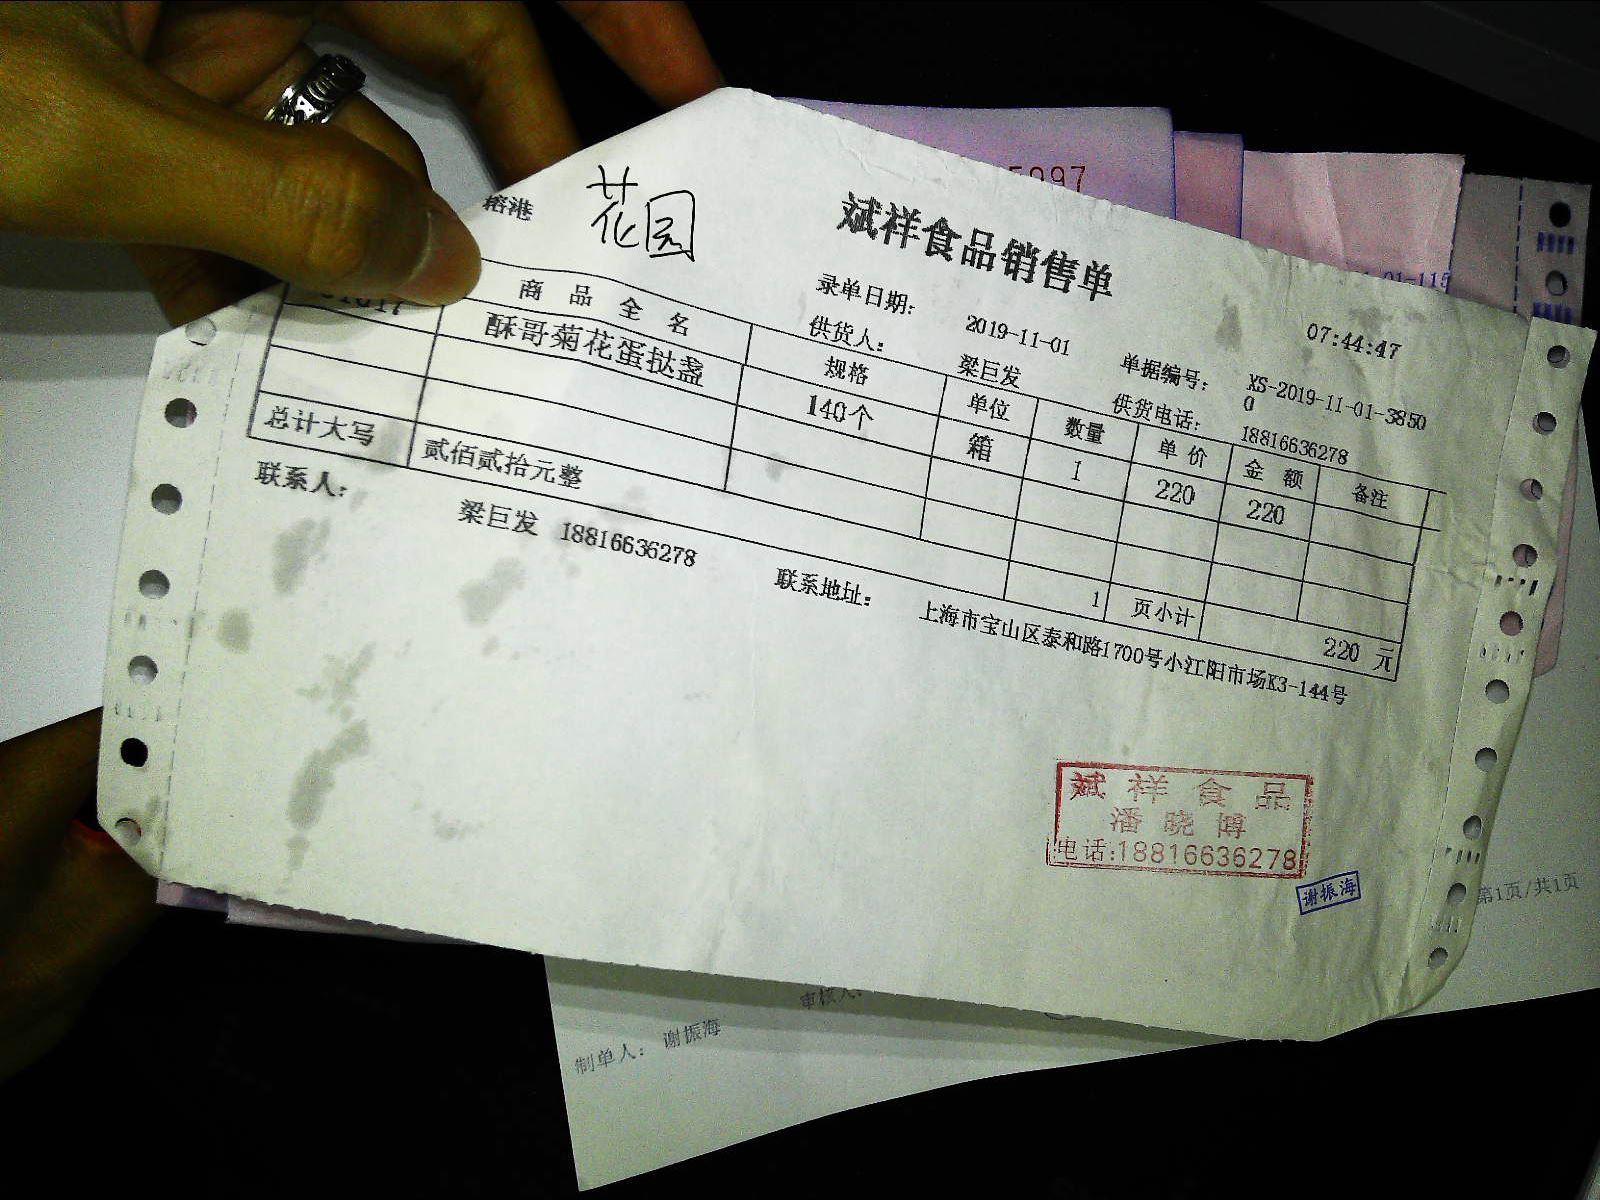 5997
花园
斌祥食品销售单
录单日期： 2019-11-01 07:44:47
供货人： 梁巨发 单据编号： XS-2019-11-01-38500
供货电话： 18816636278
商品全名 规格 单位 数量 单价 金额 备注
酥哥菊花蛋挞盏 140个 箱 1 220 220
1 页小计 220 元
总计大写 贰佰贰拾元整
联系人： 梁巨发 18816636278 联系地址： 上海市宝山区泰和路1700号小江阳市场K3-144号
斌祥食品
潘晓博
电话:18816636278
谢振海
第1页/共1页
制单人： 谢振海 审核人: